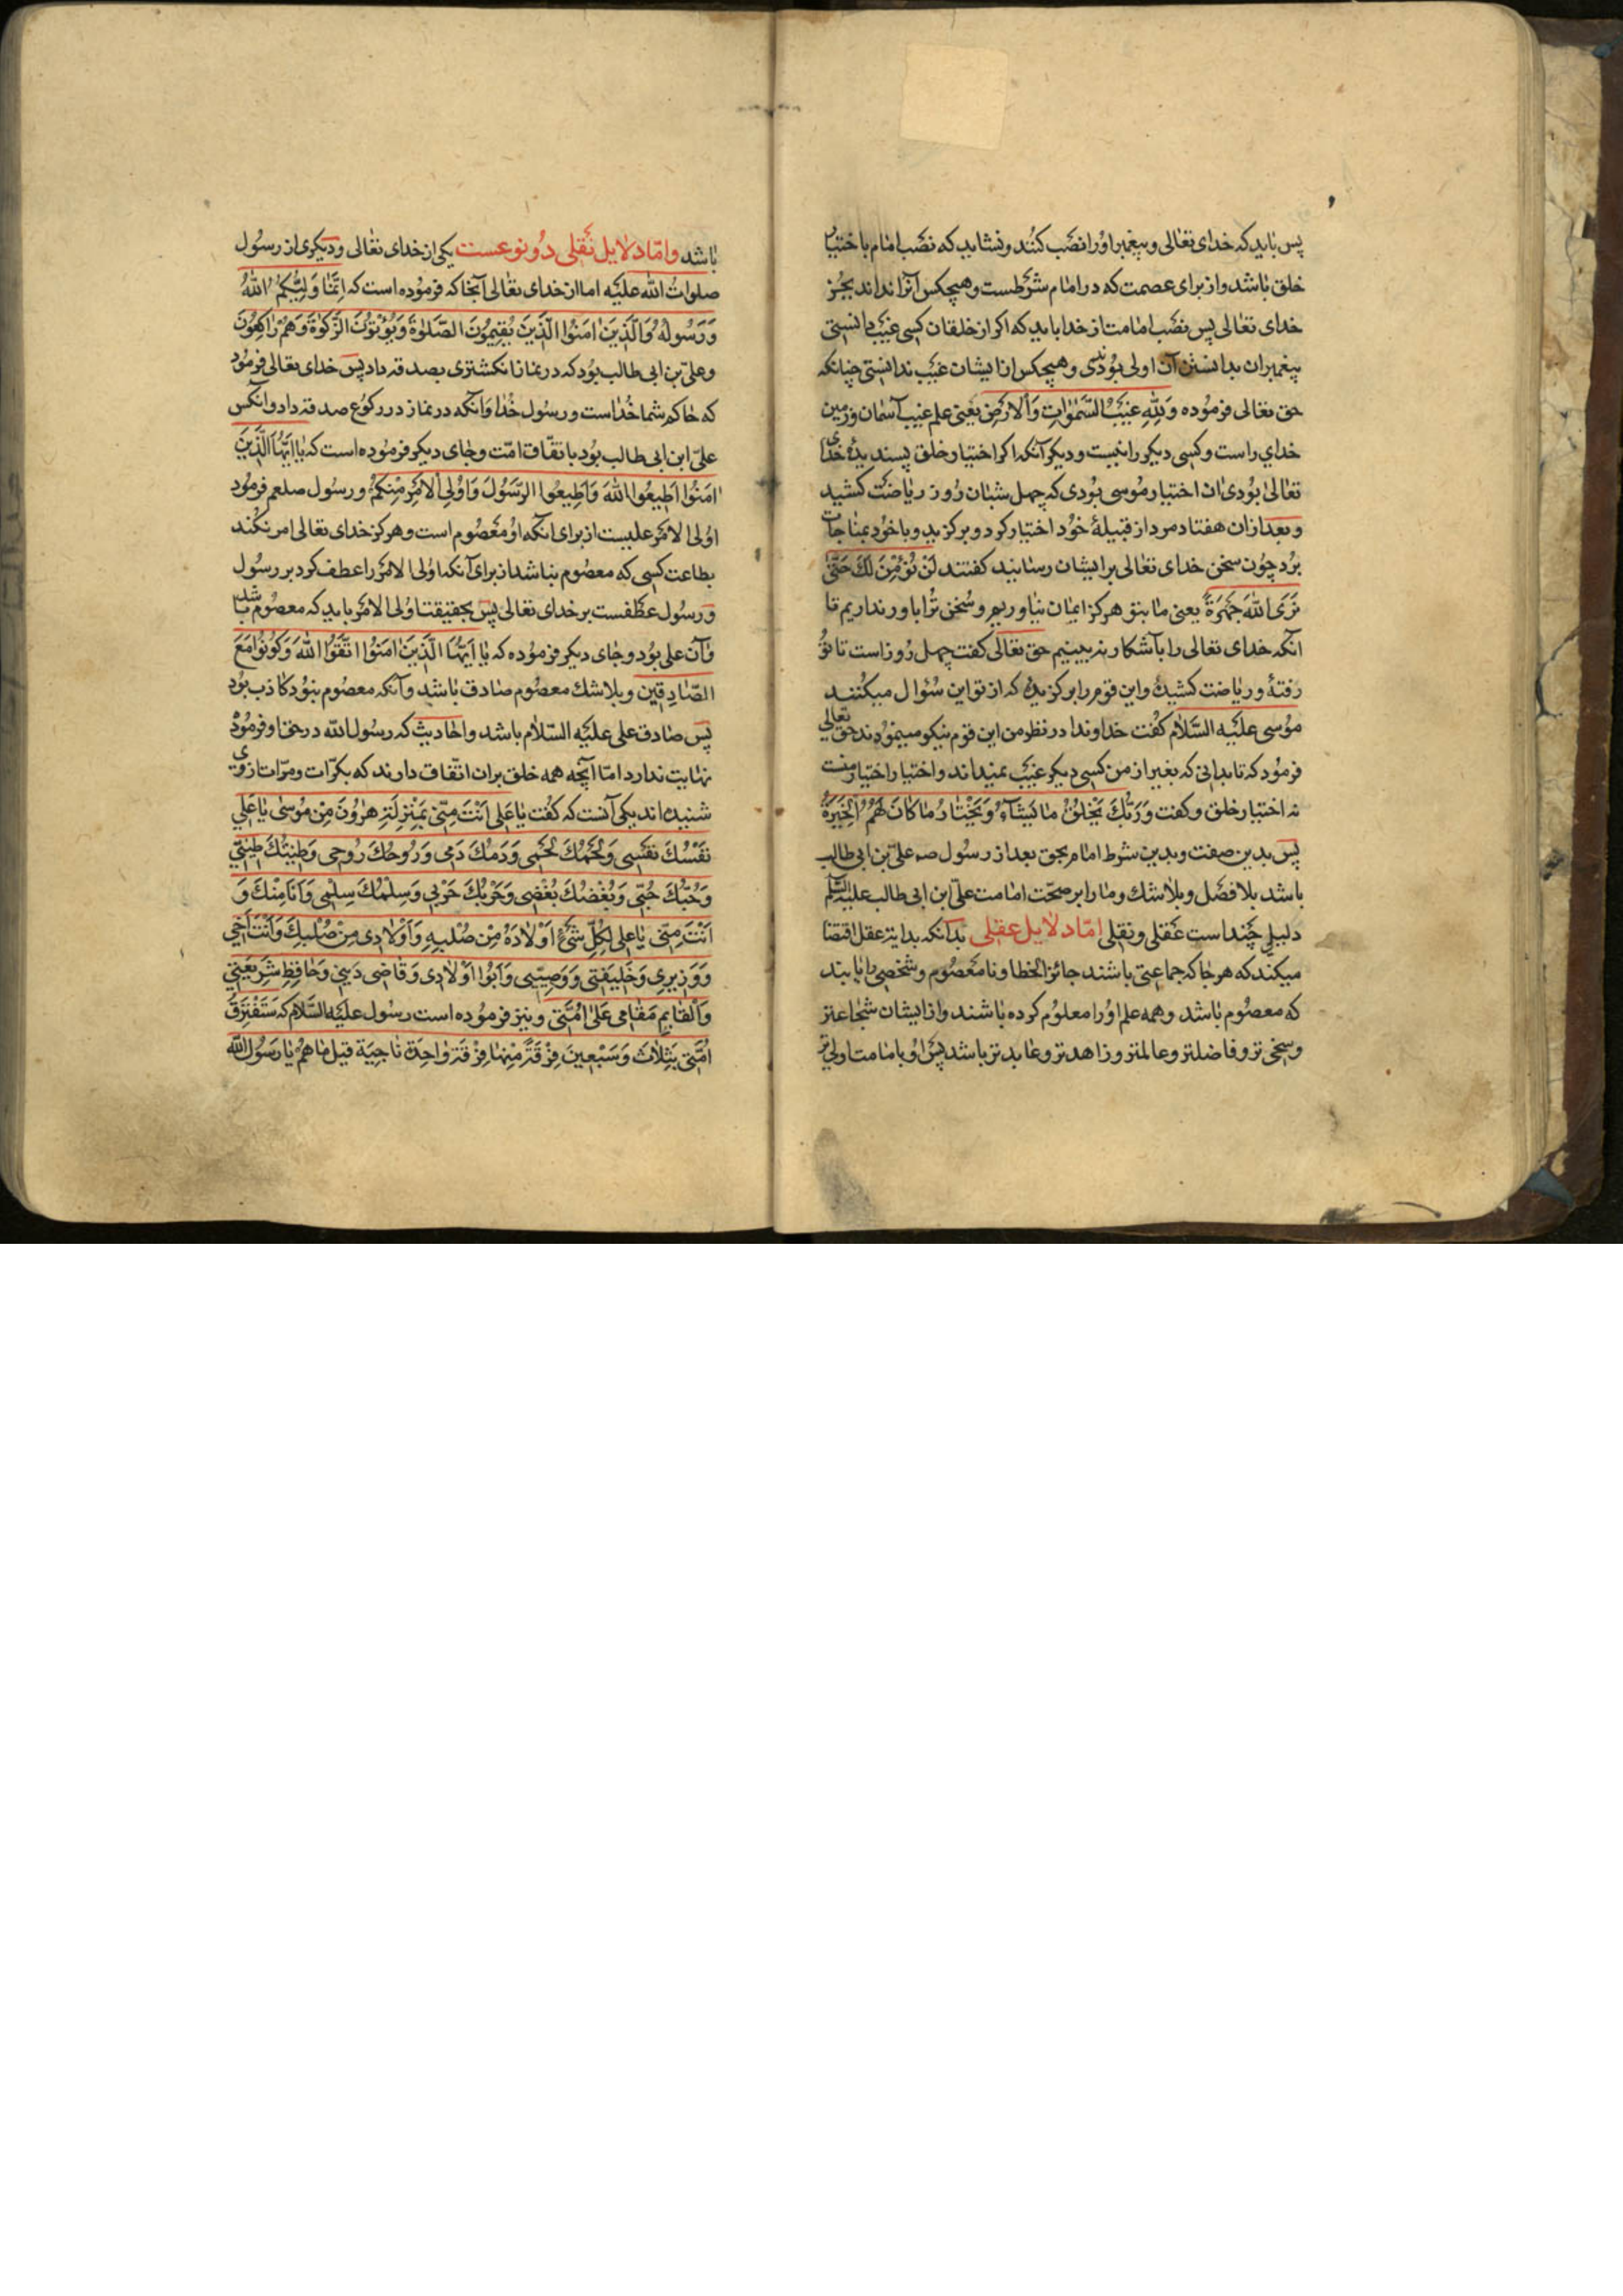 پس باید که خدای تعالی و پیغمبر اورا نصب کنند و نشاید که نصب امام باختیار
خلق باشد و از برای عصمت که در امام شرطست و هیچکس آنرا نداند بجز
خدای تعالی پس نصب امامت از خدا باید که اکر از خلقان کسی غیب دانستی
پیغمبران بدانستن آن اولی بودندی و هیچکس از ایشان غیب ندانستی چنانکه
حق تعالی فرموده وَلِلّٰهِ غَیْبُ السَّمٰوَاتِ وَالْاَرْضِ یعنی علم غیب آسمان و زمین
خدای راست و کسی دیکر را نیست و دیکر آنکه اکر اختیار خلق پسندیدهٔ خدای
تعالی بودی ان اختیار موسی بودی که چهل شبان روز ریاضت کشید
و بعد ازان هفتاد مرد از قبیلهٔ خود اختیار کرد و برکزید و با خود بمناجات
برد چون سخن خدای تعالی برایشان رسانید کفتند لَنْ نُؤْمِنَ لَكَ حَتّٰی
نَرَی اللّٰهَ جَهْرَةً یعنی ما بتو هرکز ایمان نیاوریم و سخن ترا باور نداریم تا
انکه خدای تعالی را بآشکار نه بینیم حق تعالی کفت چهل روز است تا تو
رفتهٔ و ریاضت کشیدهٔ و این قوم را برکزیدهٔ که از تو این سؤال میکنند
موسی علیه السلام کفت خداوندا در نظر من این قوم نیکو مینمودند حق تعالی
فرمود که تا بدانی که بغیر از من کسی دیکر غیب نمیداند و اختیار اختیار منست
نه اختیار خلق و کفت وَرَبُّكَ یَخْلُقُ مَا یَشَآءُ وَیَخْتَارُ مَا کَانَ لَهُمُ الْخِیَرَةُ
پس بدین صفت و بدین شرط امام بحق بعد از رسول صه علیّ بن ابی طالب
باشد بلا فصل و بلا شك و ما را بر صحّت امامت علیّ ابن ابی طالب علیه السلم
دلیلی چند است عقلی و نقلی امّا دلایل عقلی بدآنکه بدایة عقل اقتضا
میکند که هر جا که جماعتی باشند جائز الخطا و نامعصوم و شخصی را یابند
که معصوم باشد و همه علم اورا معلوم کرده باشند و از ایشان شجاعتر
و سخی تر و فاضلتر و عالمتر و زاهدتر و عابدتر باشد پس او بامامت اولی تر
باشد و امّا دلایل نقلی دو نوعست یکی از خدای تعالی و دیکری از رسول
صلوات الله علیه اما از خدای تعالی آنجا که فرموده است که اِنَّمَا وَلِیُّکُمُ اللّٰهُ
وَرَسُولُهُ وَالَّذِینَ اٰمَنُوا الَّذِینَ یُقِیمُونَ الصَّلٰوةَ وَیُؤْتُونَ الزَّکٰوةَ وَهُمْ رَاکِعُونَ
و علیّ بن ابی طالب بود که در نماز انکشتری بصدقه داد پس خدای تعالی فرمود
که حاکم شما خداست و رسول خدا و آنکه در نماز در رکوع صدقه داد و انکس
علیّ ابن ابی طالب بود باتفّاق امّت و جای دیکر فرموده است که یَا اَیُّهَا الَّذِینَ
اٰمَنُوا اَطِیعُوا اللّٰهَ وَاَطِیعُوا الرَّسُولَ وَاُولِی الْاَمْرِ مِنْکُمْ و رسول صلعم فرمود
اولی الامر علیست از برای انکه او معصوم است و هرکز خدای تعالی امر نکند
بطاعت کسی که معصوم نباشد از برای آنکه اولی الامر را عطف کرد بر رسول
و رسول عطفست بر خدای تعالی پس بحقیقت اولی الامر باید که معصوم باشد
و آن علی بود و جای دیکر فرموده که یَا اَیُّهَا الَّذِینَ اٰمَنُوا اتَّقُوا اللّٰهَ وَکُونُوا مَعَ
الصَّادِقِینَ و بلا شك معصوم صادق باشد و آنکه معصوم نبود کاذب بود
پس صادق علی علیه السلام باشد و احادیث که رسول الله در حق او فرموده
نهایت ندارد امّا آنچه همه خلق بران اتّفاق دارند که بکرّات و مرّات از وی
شنیده اند یکی آنست که کفت یَا عَلِی اَنْتَ مِنّی بِمَنْزِلَةِ هٰرُونَ مِنْ مُوسٰی یَا عَلِی
نَفْسُكَ نَفْسِی وَلَحْمُكَ لَحْمِی وَدَمُكَ دَمِی وَرُوحُكَ رُوحِی وَطِینَتُكَ طِینَتِی
وَحُبُّكَ حُبِّی وَبُغْضُكَ بُغْضِی وَحَرْبُكَ حَرْبِی وَسِلْمُكَ سِلْمِی وَاَنَا مِنْكَ وَ
اَنْتَ مِنِّی یَا عَلِی لِکُلِّ شَیْءٍ اَوْلَادَهُ مِنْ صُلْبِهِ وَاَوْلَادِی مِنْ صُلْبِكَ وَاَنْتَ اَخِی
وَوَزِیرِی وَخَلِیفَتِی وَوَصِیِّی وَاَبُوا اَوْلَادِی وَقَاضِی دَیْنِی وَحَافِظِ شَرِیعَتِی
وَالْقَایِمِ مَقَامِی عَلٰی اُمَّتِی و نیز فرموده است رسول علیه السلام که سَتَفْتَرِقُ
اُمَّتِی بِثَلَاثَ وَسَبْعِینَ فِرْقَةً مِنْهَا فِرْقَةٌ وَاحِدَةٌ نَاجِیَة قِیلَ مَا هُمْ یَا رَسُولَ اللّٰه